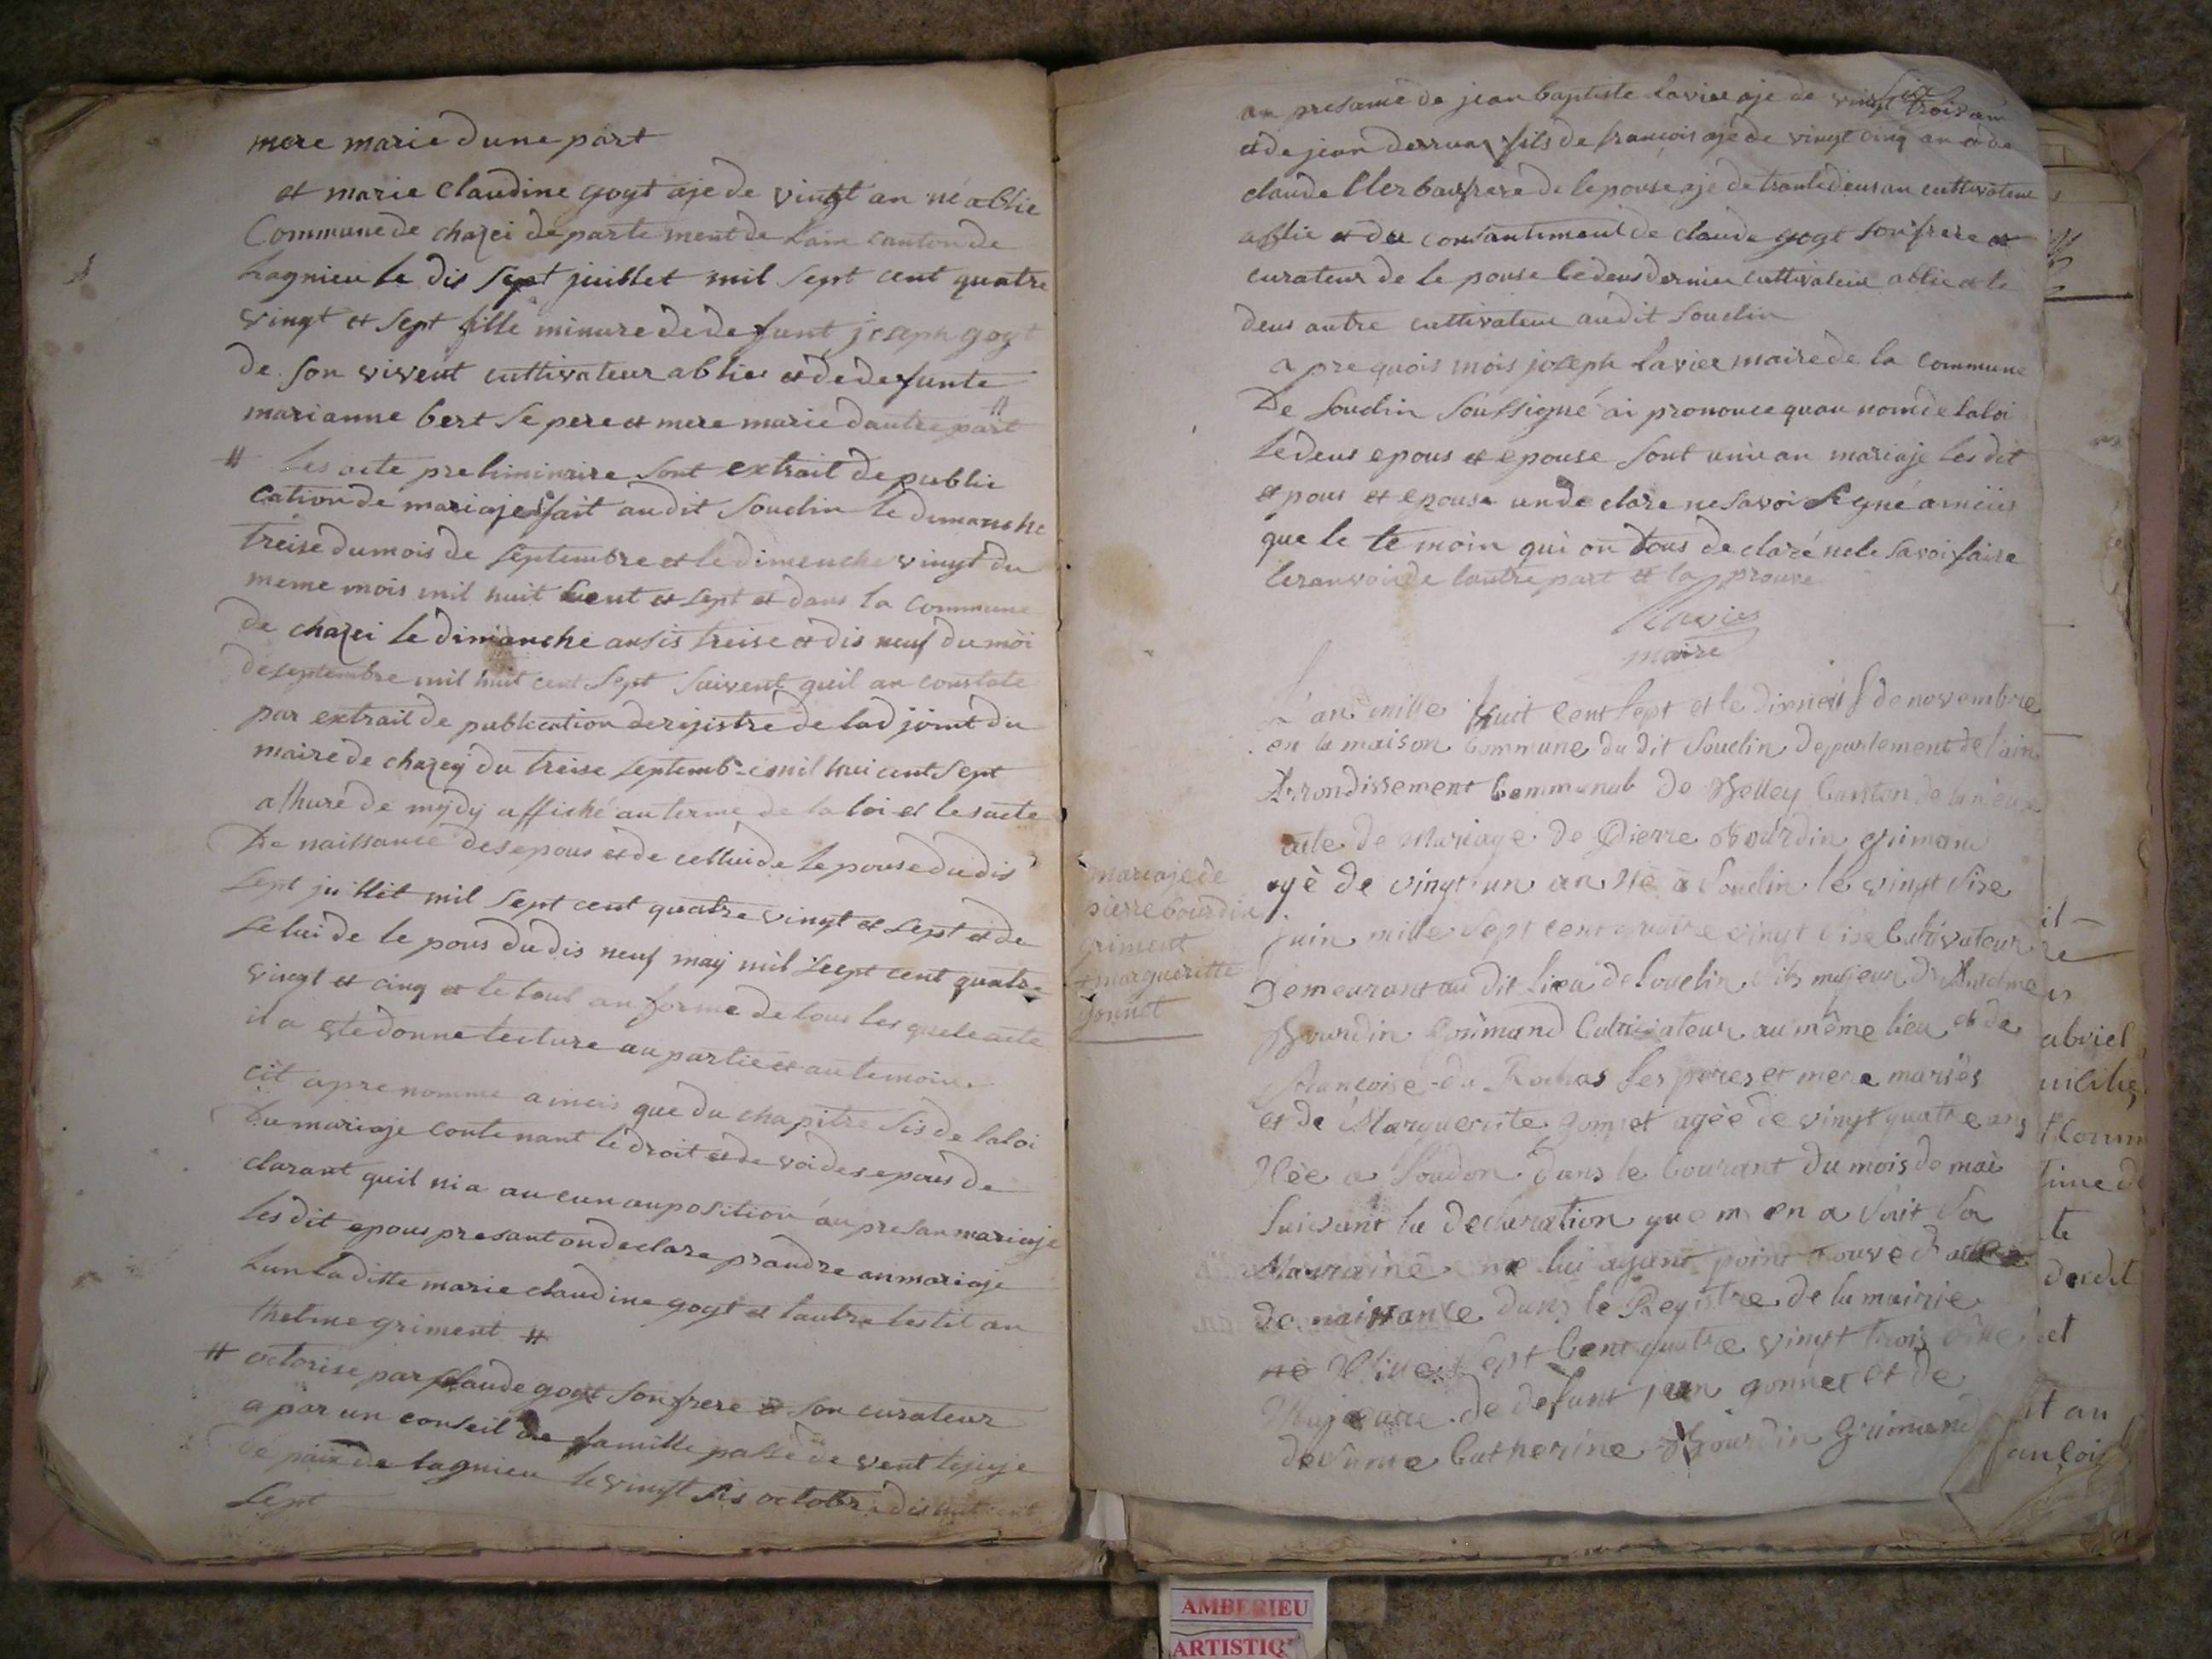 mere marie dune part
et marie Claudine gogt aje de vingt an né a blie
Commune de chazei departement de Lain canton de
Lagnieu le dis sept juillet mil sept cent quatre
vingt et sept fille minure de defunt joseph gogt
de son vivent cuttivateur a blie et de defunte
marianne bert se pere et mere marie dautre part #
# Les acte preliminaire sont extrait de public
cation de mariaje fait audit Souclin le dimanche
treise du mois de septembre et le dimenche vingt du
meme mois mil huit cent et sept et dans la commune
de chazei le dimanche ansis treise et dis neuf du moi
de septembre mil huit cent sept suivent quil an constate
par extrait de publication de rejistre de lad joint du
maire de chazey du treise septemb mil hui cent sept
a lhure de mydy affiché au terme de la loi et les acte
De naissance des epous et de celluide le pouse du dis
sept juillet mil sept cent quatre vingt et sept et de
seluide le pous du dis neuf may mil sept cent quatre
vingt et cinq et le tout an forme de tous les quele acte
il a ete donne lecture au partie et au temoin
cit apre nomme aincis que du chapitre sis de la loi
du mariaje contenant le droit et de voi des epous de
clarant quil nia aucun auposition au presan mariaje
les dit epous presant on declare prandre an mariaje
lun la ditte marie claudine gogt et lautre lestit an
thelme griment #
# octorise par claude gogt son frere et son curateur
a par un conseil de famille passé de vent le juje
de paix de lagnieu le vingt sis octobre dis huit cent
sept
an presance de jean baptiste Lavier aje de vingt trois an
et de jean derruaz fils de francois aje de vingt cinq an et de
claude Clerbau frere de lepouse aje de trante deus an cuttivateur
a blie et du consantement de claude gogt son frere et
curateur de le pouse le deus dernier cuttivateur a blie et le
deus autre cuttivateur audit Souclin
a pre quois mois joseph Lavier maire de la commune
De Souclin Soussigné ai prononce quau nom de la loi
le deus epous et epouse sont uni an mariaje les dit
epous et epouse un declare ne savoi signé ainciis
que le temoin qui on tous declaré nele savoi faire
le ranvoi de lautre part et la prouve
Lavier
maire
L'an mille huit cent sept et le dixneuf de novembre
en la maison Commune du dit Souclin departement de l'ain
Arrondissement Communal de Belley Canton de
acte de Mariage de Pierre Bourdin grimand
agè de vingt un an Né à Souclin le vingt Sixe
juin mille Sept cent quatre vingt Sixe Cultivateur
Demeurant au dit Lieu de Souclin fils majeur d'Antelme
Bourdin Grimand Cultivateur au même lieu et de
Francoise du Rochas Ses peres et mere mariés
et de Marguerite gonnet agée de vingt quatre ans
Née a Soudon dans le Courant du mois de mai
Suivant la declaration que m en a fait Sa
Marraine ne lui ayant point trouvé d acte
de naissance dans le Registre de la mairie
né Mille Sept Cent quatre vingt trois fille
Majeure de defunt jean gonnet et de
defunte Catherine Bourdin Grimand
mariaje de
pierre bourdin
griment
et margueritte
gonnet
il
re
abriel
te
dudit
et
it au
ancois
AMBERIEU
ARTISTIQ